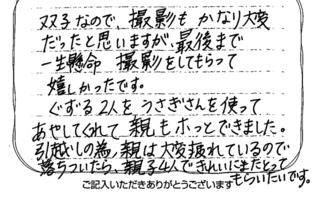 双子なので、撮影も かなり大変
だったと思いますが、最後まで
一生懸命 撮影をしてもらって
嬉しかったです。
ぐずる2人を うさぎさんを使って
あやしてくれて 親もホッとできました。
引越しの為、親は大変疲れているので
落ちついたら、親子4人できれいにまたとって
もらいたいです。
ご記入いただきありがとうございます